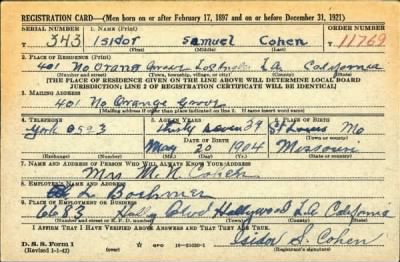 REGISTRATION CARD—(Men born on or after February 17, 1897 and on or before December 31, 1921)
SERIAL NUMBER 1. NAME (Print) ORDER NUMBER
343 Isidor Samuel Cohen 11769
(First) (Middle) (Last)
2. PLACE OF RESIDENCE (Print)
401 No Orange Grove Los Angeles L.A. California
(Number and street) (Town, township, village, or city) (County) (State)
[THE PLACE OF RESIDENCE GIVEN ON THE LINE ABOVE WILL DETERMINE LOCAL BOARD
JURISDICTION; LINE 2 OF REGISTRATION CERTIFICATE WILL BE IDENTICAL]
3. MAILING ADDRESS
401 No Orange Grove
(Mailing address if other than place indicated on line 2. If same insert word same)
4. TELEPHONE 5. AGE IN YEARS 6. PLACE OF BIRTH
York 0593 Thirty seven 39 St Louis Mo
DATE OF BIRTH
May 20 1904 Missouri
(Exchange) (Number) (Mo.) (Day) (Yr.) (State or country)
7. NAME AND ADDRESS OF PERSON WHO WILL ALWAYS KNOW YOUR ADDRESS
Mrs M. N. Cohen
8. EMPLOYER'S NAME AND ADDRESS
L. Boehmer
9. PLACE OF EMPLOYMENT OR BUSINESS
6683 Holly Blvd Hollywood L.A. California
(Number and street or R. F. D. number) (Town) (County) (State)
I AFFIRM THAT I HAVE VERIFIED ABOVE ANSWERS AND THAT THEY ARE TRUE.
D. S. S. Form 1
(Revised 1-1-42) GPO 16—21630-1
Isidor S. Cohen